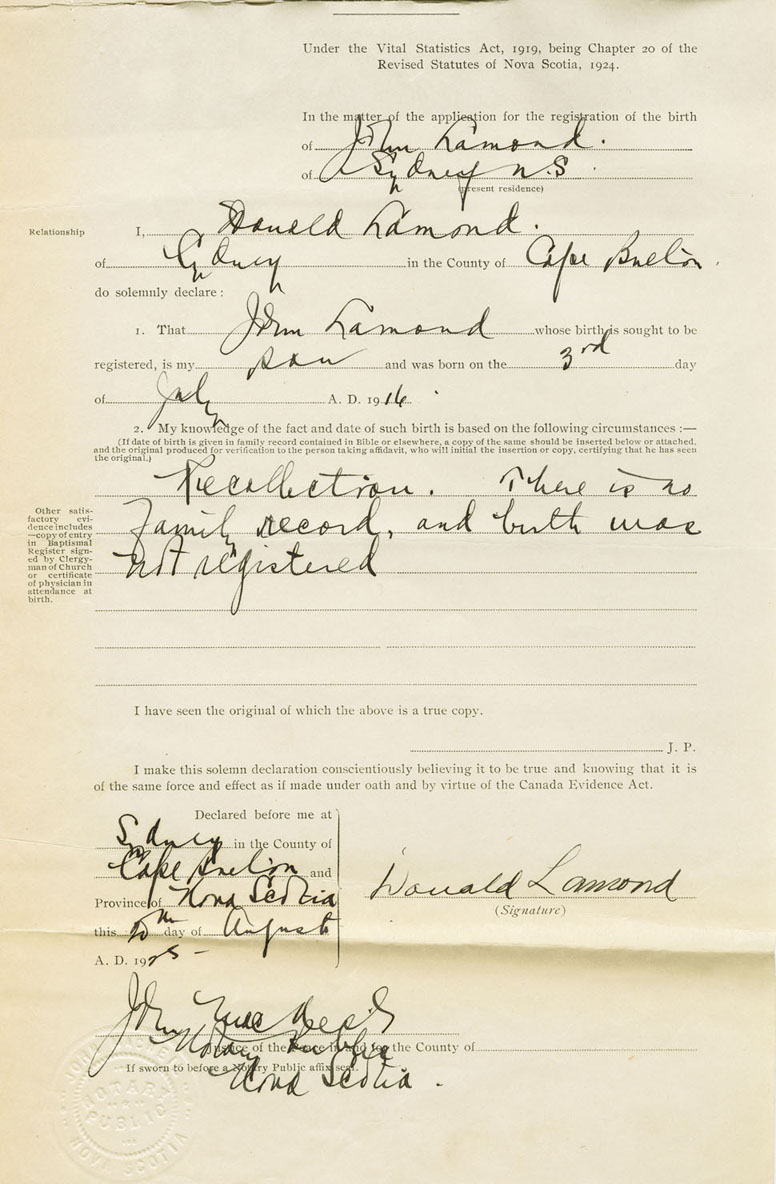 Under the Vital Statistics Act, 1919, being Chapter 20 of the
Revised Statutes of Nova Scotia, 1924.
In the matter of the application for the registration of the birth
of John Lamond.
of Sydney N.S
(present residence)
Relationship
I, Donald Lamond.
of Sydney in the County of Cape Breton.
do solemnly declare :
1. That John Lamond whose birth is sought to be
registered, is my son and was born on the 3rd day
of July A. D. 1916.
2. My knowledge of the fact and date of such birth is based on the following circumstances :—
(If date of birth is given in family record contained in Bible or elsewhere, a copy of the same should be inserted below or attached,
and the original produced for verification to the person taking affidavit, who will initial the insertion or copy, certifying that he has seen
the original.)
Recollection. There is no
family record, and birth was
not registered
Other satis-
factory evi-
dence includes
—copy of entry
in Baptismal
Register sign-
ed by Clergy-
man of Church
or certificate
of physician in
attendance at
birth.
I have seen the original of which the above is a true copy.
J. P.
I make this solemn declaration conscientiously believing it to be true and knowing that it is
of the same force and effect as if made under oath and by virtue of the Canada Evidence Act.
Declared before me at
Sydney in the County of
Cape Breton and
Province of Nova Scotia
this day of August
A. D. 19
Donald Lamond
(Signature)
John Mac
Notary Public
Justice of the Peace in and for the County of
If sworn to before a Notary Public affix seal.
Nova Scotia.
NOTARY
PUBLIC
NOVA SCOTIA